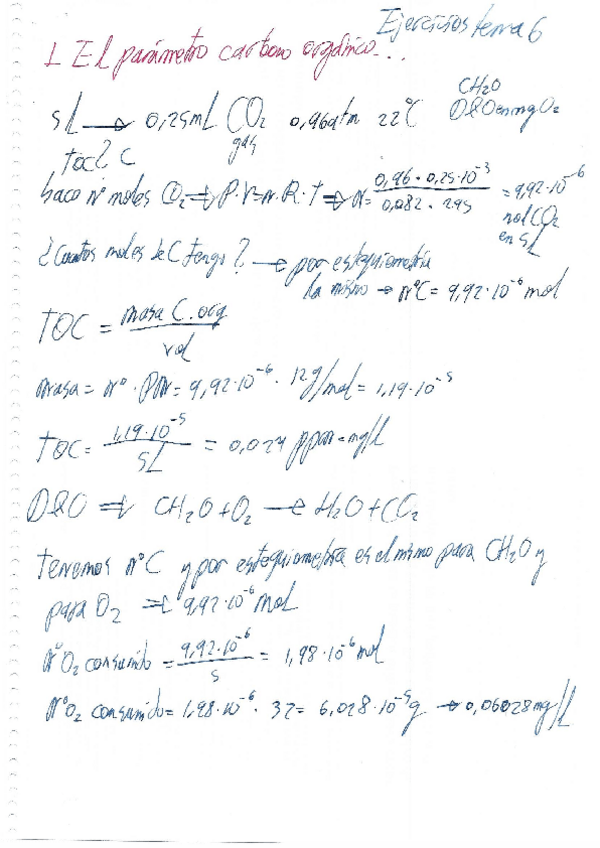 Ejercicios tema 6
1. El parámetro carbono orgánico...
5L → 0,25mL CO₂ 0,96atm 22ºC CH₂O
gas DQO en mg O₂
TOC? C
Saco nº moles CO₂ ⇒ P·V=n·R·T ⇒ n = 0,96 · 0,25·10⁻³ / 0,082 · 295 = 9,92·10⁻⁶
mol CO₂
en 5L
¿Cuantos moles de C tengo? → por estequiometria
la misma → nºC = 9,92·10⁻⁶ mol
TOC = masa C. org / vol
masa = nº · PM = 9,92·10⁻⁶ · 12g/mol = 1,19·10⁻⁵
TOC = 1,19·10⁻⁵ / 5L = 0,024 ppm = mg/L
DQO ⇒ CH₂O + O₂ → H₂O + CO₂
Tenemos nºC y por estequiometria es el mismo para CH₂O y
para O₂ ⇒ 9,92·10⁻⁶ mol
nº O₂ consumido = 9,92·10⁻⁶ / 5 = 1,98·10⁻⁶ mol
nº O₂ consumido = 1,98·10⁻⁶ · 32 = 6,028·10⁻⁵g → 0,06028mg/L